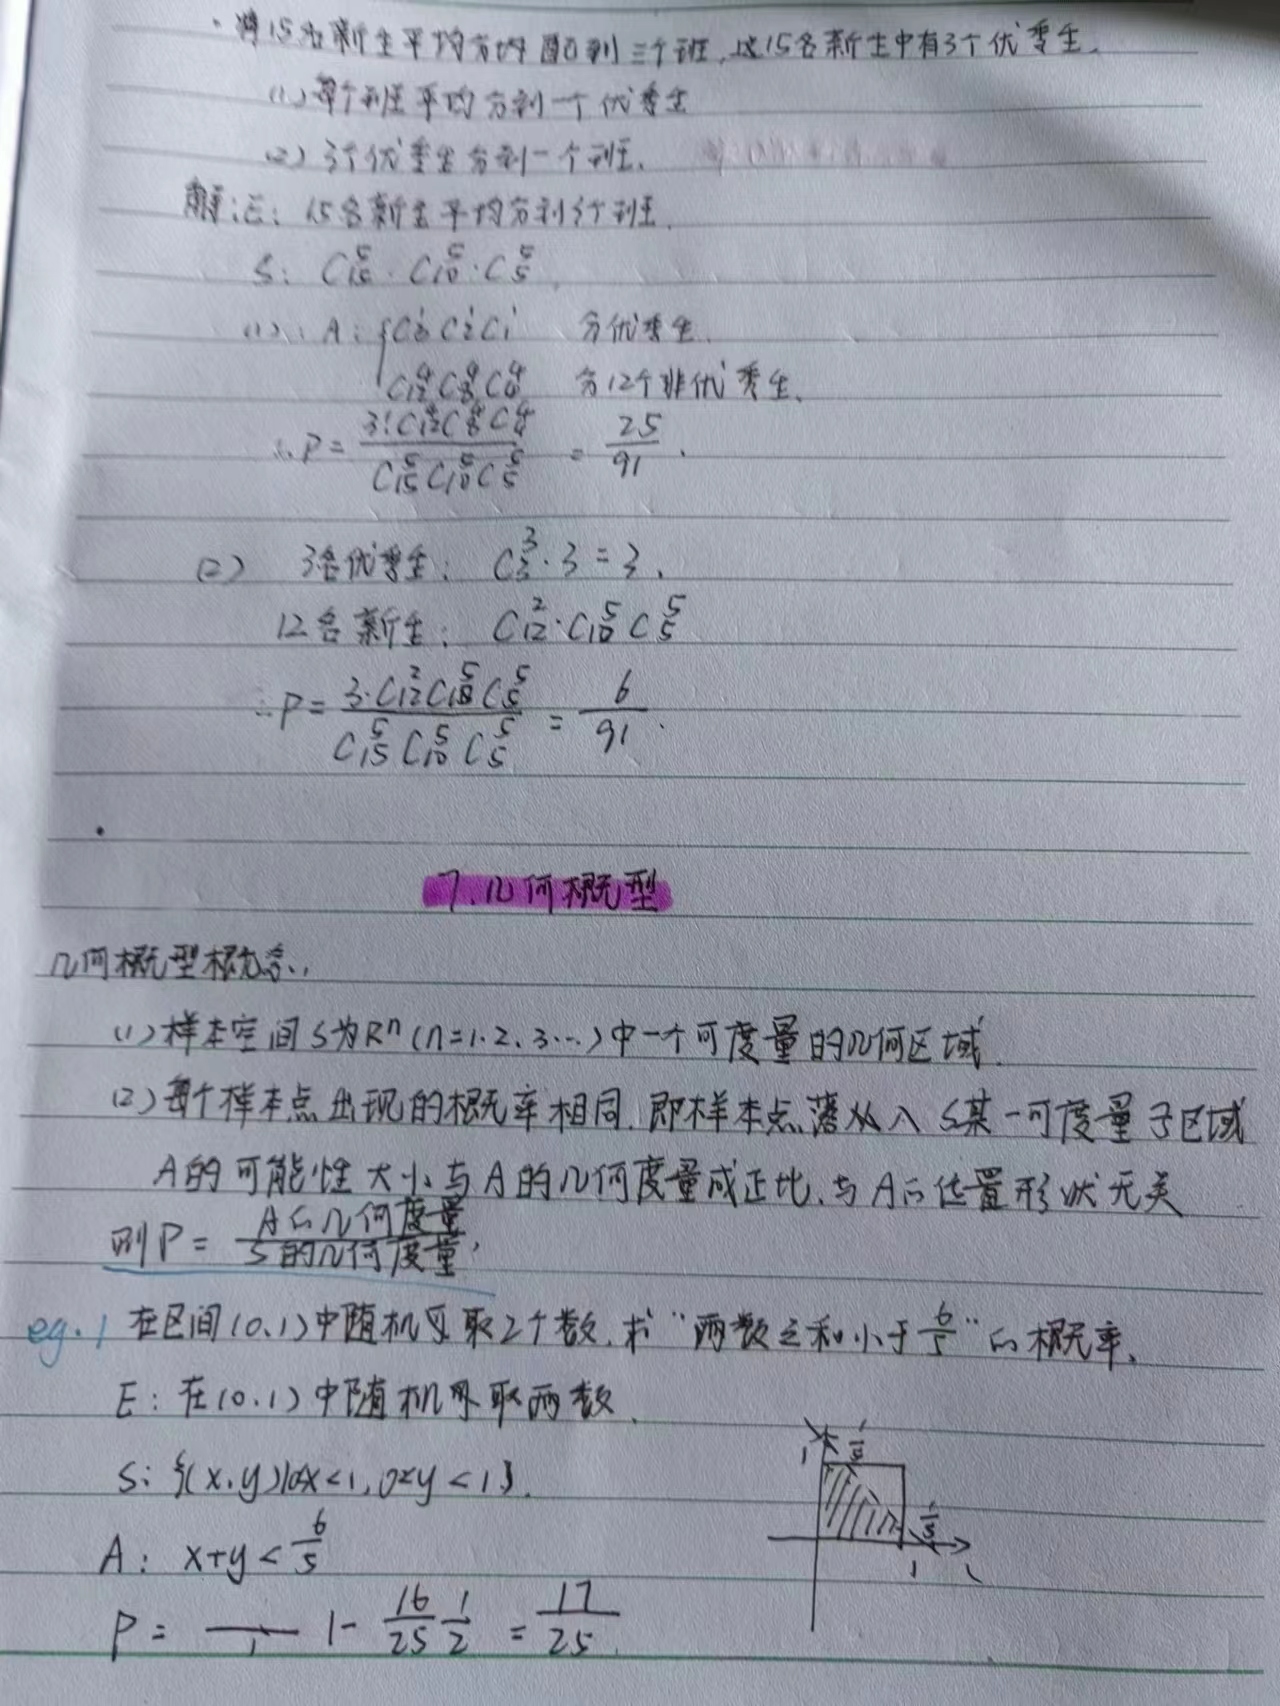 ·将15名新生平均分配到三个班,这15名新生中有3个优秀生.
(1)每个班平均分到一个优秀生
(2)3个优秀生分到一个班.
解:E:15名新生平均分到3个班.
S: C₁₅⁵·C₁₀⁵·C₅⁵
(1): A:{C₃¹C₂¹C₁¹ 分优秀生.
C₁₂⁴C₈⁴C₄⁴ 分12个非优秀生.
∴P= 3!C₁₂⁴C₈⁴C₄⁴ / C₁₅⁵C₁₀⁵C₅⁵ = 25/91.
(2) 3名优秀生: C₃³·3=3.
12名新生: C₁₂²·C₁₀⁵C₅⁵
∴P= 3·C₁₂²C₁₀⁵C₅⁵ / C₁₅⁵C₁₀⁵C₅⁵ = 6/91.
7.几何概型
几何概型概念:
(1)样本空间S为Rⁿ(n=1.2.3…)中一个可度量的几何区域.
(2)每个样本点出现的概率相同.即样本点落入S某一可度量子区域
A的可能性大小与A的几何度量成正比.与A的位置形状无关
则P= A的几何度量 / S的几何度量.
eg.1 在区间(0.1)中随机取2个数.求“两数之和小于6/5”的概率.
E:在(0.1)中随机取两数.
S:{(x.y)|0<x<1,0<y<1}.
1 1/5
A: x+y<6/5
1/5
1
P= —/1 1- 16/25 1/2 = 17/25.